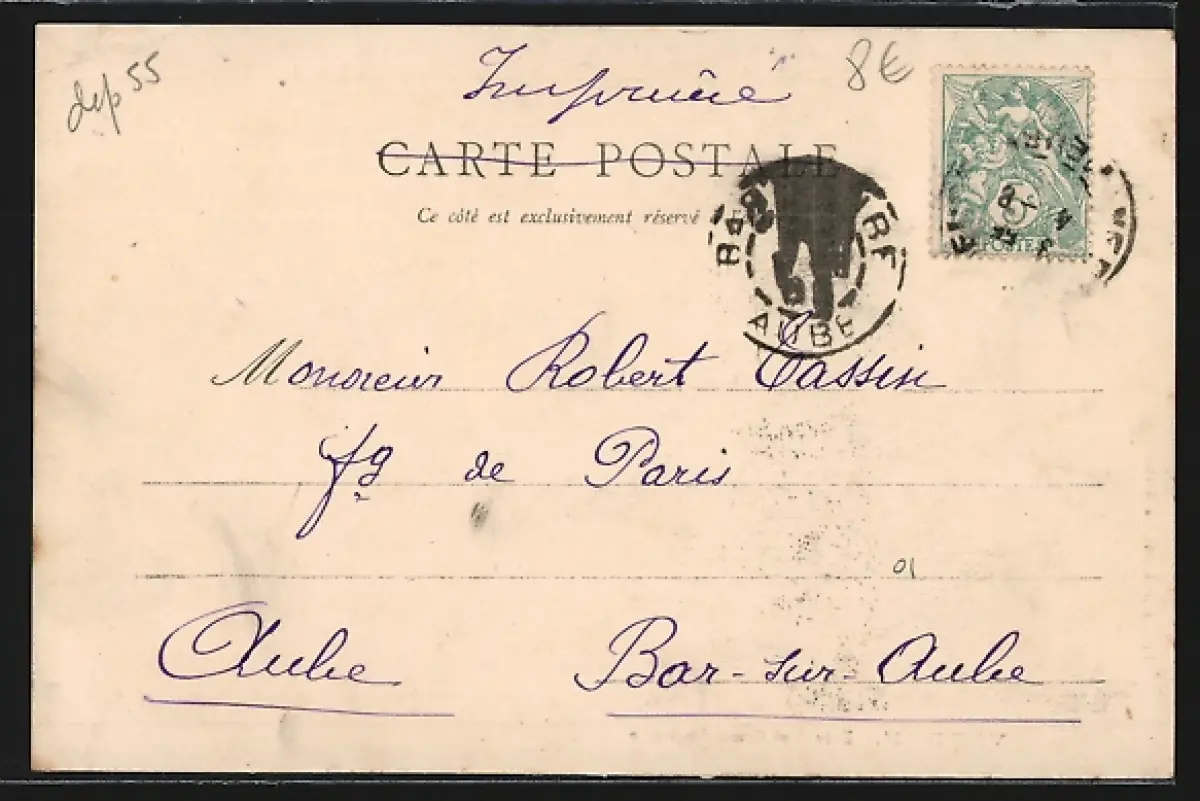 dep 55
Imprimé
8€
CARTE POSTALE
Ce côté est exclusivement réservé
5
POSTES
BAR
AUBE
Monsieur Robert Cassin
fg de Paris
01
Aube Bar-sur-Aube